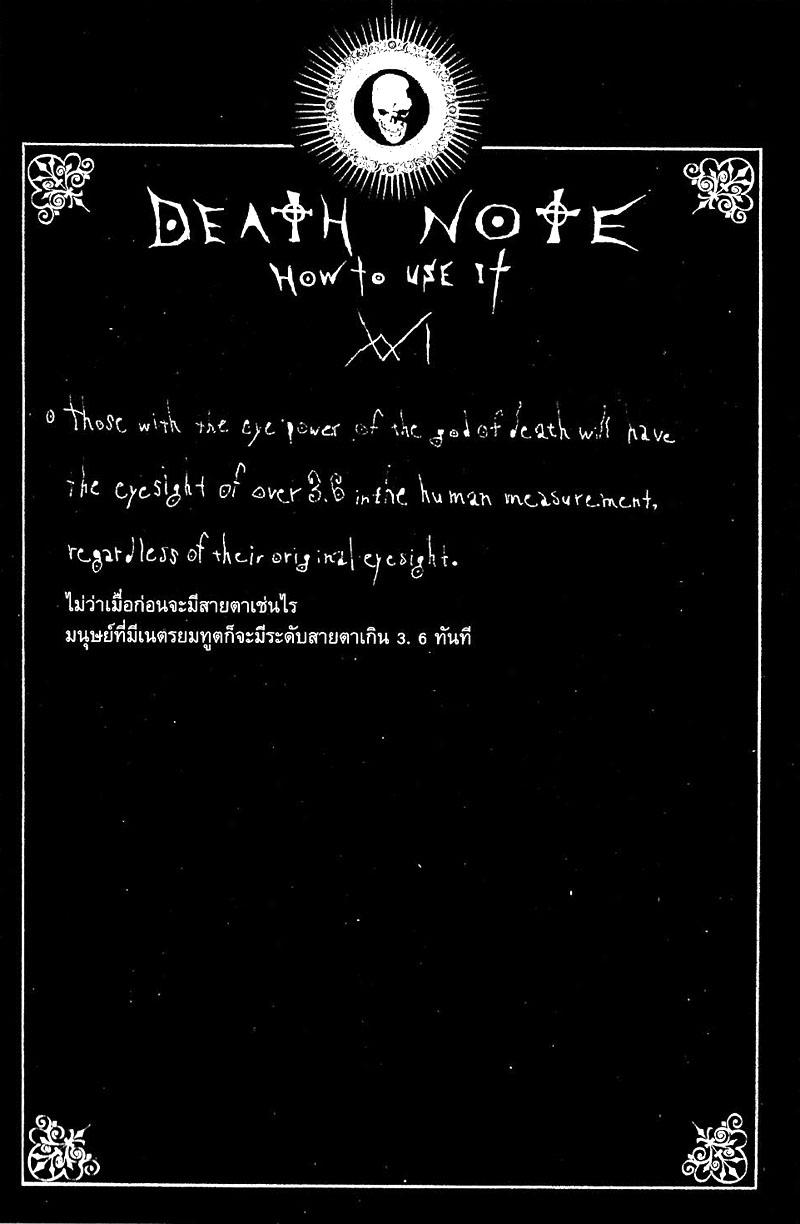 DEATH NOTE
HOW to USE It
XXI
those with the eye power of the god of death will have
the eyesight of over 3.6 in the human measurement,
regardless of their original eyesight.
ไม่ว่าเมื่อก่อนจะมีสายตาเช่นไร
มนุษย์ที่มีเนตรยมทูตก็จะมีระดับสายตาเกิน 3. 6 ทันที